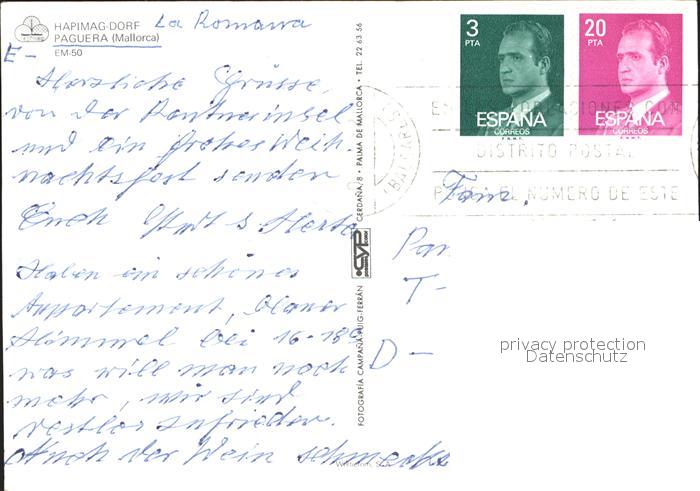 La Romana
HAPIMAG-DORF
PAGUERA (Mallorca)
EM-50
E-
Herzliche Grüsse,
von der Rentnerinsel
und ein frohes Weih-
nachtsfest senden
Euch Kurt & Herta
Haben ein schönes
Appartement, blauer
Himmel bei 16-18°
was will man noch
mehr, wir sind
restlos zufrieden.
Auch der Wein schmeckt
FOTOGRAFÍA CAMPAÑÁ-PUIG-FERRÁN
CYP
CERDAÑA/8 • PALMA DE MALLORCA • TEL. 22 63 56
3
PTA
ESPAÑA
CORREOS
F.N.M.T.
20
PTA
ESPAÑA
CORREOS
F.N.M.T.
CON
DISTRITO POSTAL
EL NUMERO DE ESTE
(BALEARES)
Fam.
T-
D-
privacy protection
Datenschutz